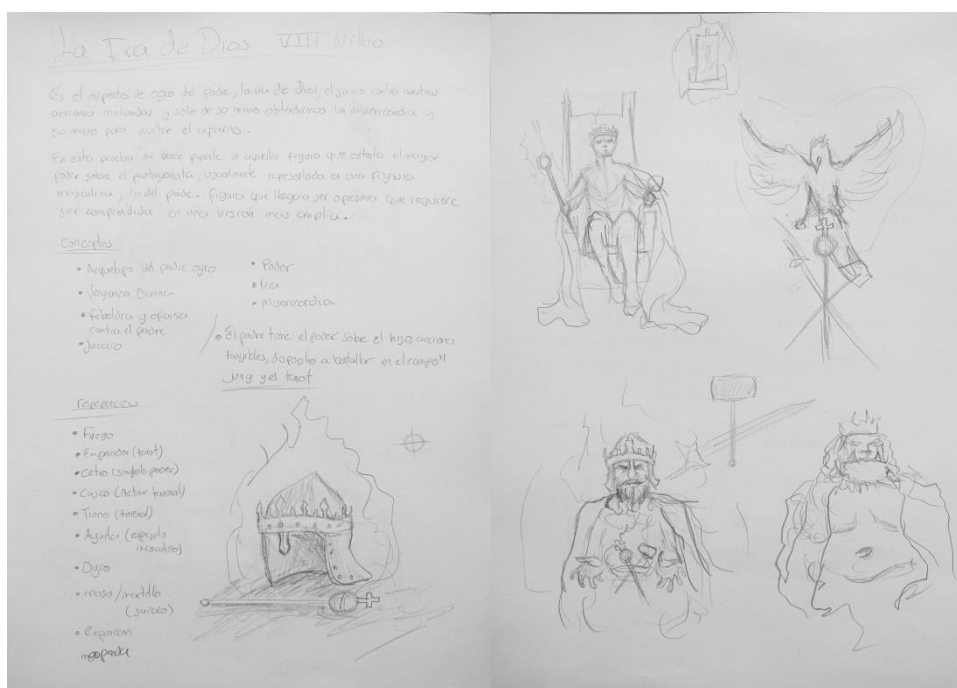 La Ira de Dios VIII
Es el aspecto de ogro del padre, la ira de Dios, el juicio contra nuestras
acciones malvadas y sólo de su mano obtendremos la misericordia y
su mazo para evitar el
En esta prueba se hace frente a aquella figura que ostenta el mayor
poder sobre el protagonista, usualmente representada en una figura
masculina, la del padre. Figura que llega a ser opresiva que requiere
ser comprendida en una visión mas amplia.
Conceptos
• Arquetipo del padre ogro
• Venganza Divina
• Rebeldía y ofensa
contra el padre
• Juicio
• Poder
• Ira
• Misericordia
• El padre tiene el poder sobre el hijo, acciones
tangibles, dispuesto a batallar en el campo"
Jung y el tarot
Referencias
• Fuego
• Emperador (tarot)
• Cetro (simbolo poder)
• Casco (Actuar
• Trono
• Aguila (espiritu
masculino)
• Ogro
• maso/martillo
(juicio)
• Expiación